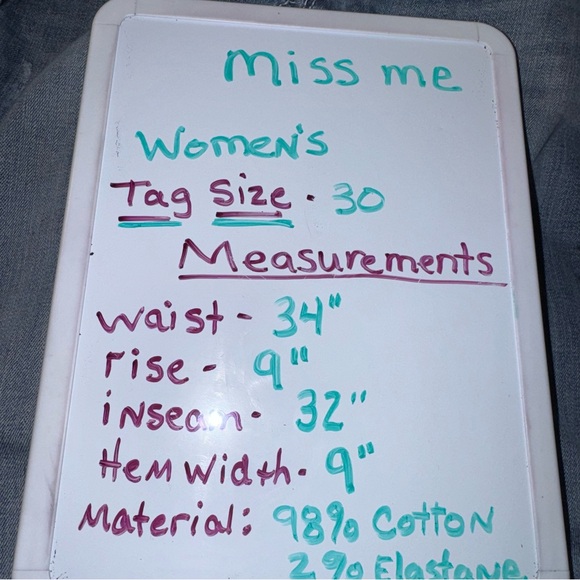 miss me
Women's
Tag Size - 30
Measurements
waist - 34"
rise - 9"
inseam - 32"
Hem Width - 9"
Material: 98% Cotton
2% Elastane